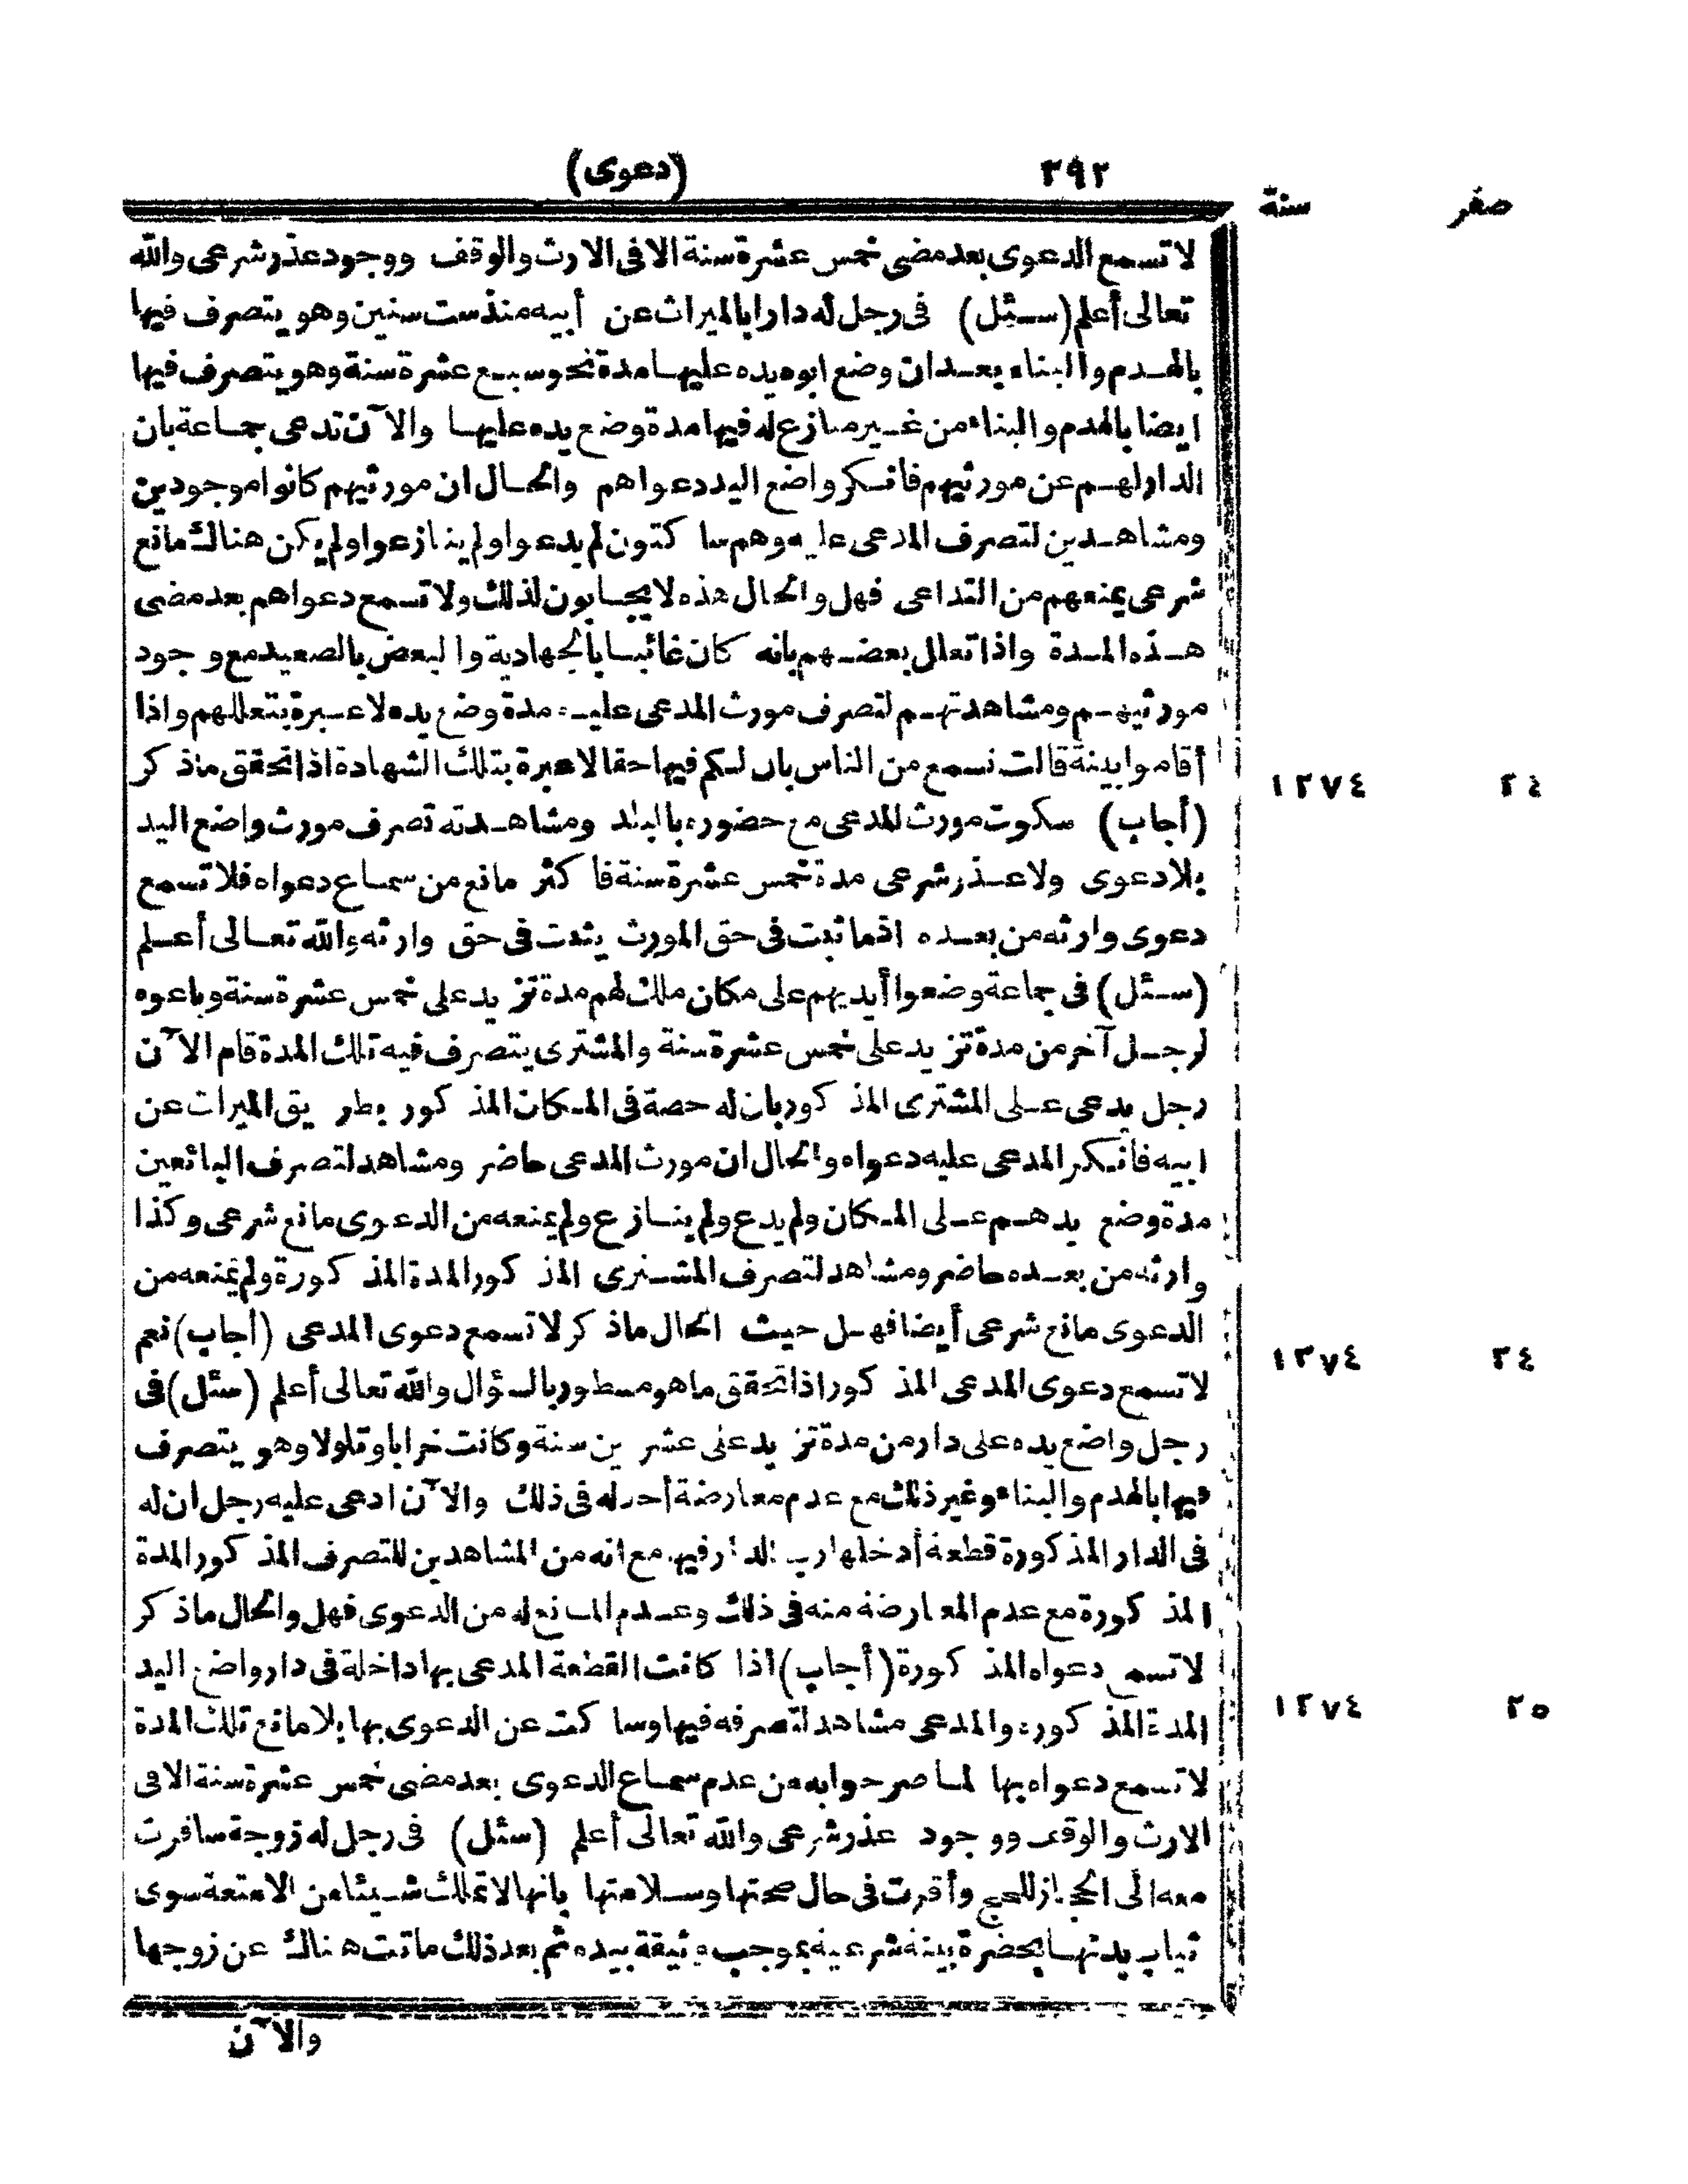 ٣٩٢ (دعوى)
صفر سنة
لا تسمع الدعوى بعد مضى خمس عشرة سنة الا فى الارث والوقف ووجود عذر شرعى والله
تعالى أعلم (سئل) فى رجل له دار ابالميراث عن أبيه منذ ست سنين وهو يتصرف فيها
بالهدم والبناء بعد ان وضع ابوه يده عليها مدة نحو سبع عشرة سنة وهو يتصرف فيها
ايضا بالهدم والبناء من غير منازع له فيها مدة وضع يده عليها والآن تدعى جماعة بان
الدار لهم عن مورثيهم فانكر واضع اليد دعواهم والحال ان مورثيهم كانوا موجودين
ومشاهدين لتصرف المدعى عليه وهم ساكتون لم يدعوا ولم ينازعوا ولم يكن هناك مانع
شرعى يمنعهم من التداعى فهل والحال هذه لا يجابون لذلك ولا تسمع دعواهم بعد مضى
هذه المدة واذا تعلل بعضهم بانه كان غائبا بالجهادية والبعض بالصعيد مع وجود
مورثيهم ومشاهدتهم لتصرف مورث المدعى عليه مدة وضع يده لا عبرة بتعللهم واذا
أقاموا بينة قالت نسمع من الناس بان لكم فيها حقا لا عبرة بتلك الشهادة اذا تحقق ماذكر
٢٤ ١٢٧٤
(أجاب) سكوت مورث المدعى مع حضوره بالبلد ومشاهدته تصرف مورث واضع اليد
بلا دعوى ولا عذر شرعى مدة خمس عشرة سنة فاكثر مانع من سماع دعواه فلا تسمع
دعوى وارثه من بعده اذ ما ثبت فى حق المورث يثبت فى حق وارثه والله تعالى أعلم
(سئل) فى جماعة وضعوا أيديهم على مكان ملك لهم مدة تزيد على خمس عشرة سنة وباعوه
لرجل آخر من مدة تزيد على خمس عشرة سنة والمشترى يتصرف فيه تلك المدة قام الآن
رجل يدعى على المشترى المذكور بان له حصة فى المكان المذكور بطريق الميراث عن
ابيه فانكر المدعى عليه دعواه والحال ان مورث المدعى حاضر ومشاهد لتصرف البائعين
مدة وضع يدهم على المكان ولم يدع ولم ينازع ولم يمنعه من الدعوى مانع شرعى وكذا
وارثه من بعده حاضر ومشاهد لتصرف المشترى المذكور المدة المذكورة ولم يمنعه من
الدعوى مانع شرعى أيضا فهل حيث الحال ماذكر لا تسمع دعوى المدعى (أجاب) نعم
٢٤ ١٢٧٤
لا تسمع دعوى المدعى المذكور اذا تحقق ما هو مسطور بالسؤال والله تعالى أعلم (سئل) فى
رجل واضع يده على دار من مدة تزيد على عشرين سنة وكانت خرابا وتلولا وهو يتصرف
فيها بالهدم والبناء وغير ذلك مع عدم معارضة أحد له فى ذلك والآن ادعى عليه رجل ان له
فى الدار المذكورة قطعة أدخلها رب الدار فيها مع انه من المشاهدين للتصرف المذكور المدة
المذكورة مع عدم المعارضة منه فى ذلك وعدم المانع له من الدعوى فهل والحال ماذكر
لا تسمع دعواه المذكورة (أجاب) اذا كانت القطعة المدعى بها داخلة فى دار واضع اليد
المدة المذكورة والمدعى مشاهد لتصرفه فيها وساكت عن الدعوى بها بلا مانع تلك المدة
٢٥ ١٢٧٤
لا تسمع دعواه بها لما صرحوا به من عدم سماع الدعوى بعد مضى خمس عشرة سنة الا فى
الارث والوقف ووجود عذر شرعى والله تعالى أعلم (سئل) فى رجل له زوجة سافرت
معه الى الحجاز للحج وأقرت فى حال صحتها وسلامتها بانها لا تملك شيئا من الامتعة سوى
ثياب بدنها بحضرة بينة شرعية بموجب وثيقة بيده ثم بعد ذلك ماتت هناك عن زوجها
والآن